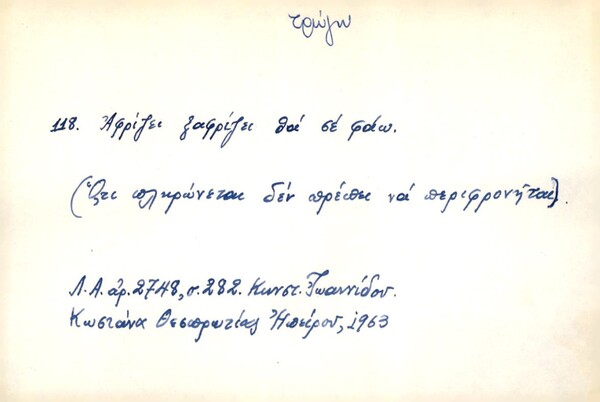 τρώγω
118. Ἀφρίζει ξαφρίζει θά σέ φάω.
(Ὅτι πληρώνεται δέν πρέπει νά περιφρονῆται).
Λ.Α. ἀρ. 2748, σ. 282. Κωνστ. Ἰωαννίδου.
Κωστάνα Θεσπρωτίας Ἠπείρου, 1963